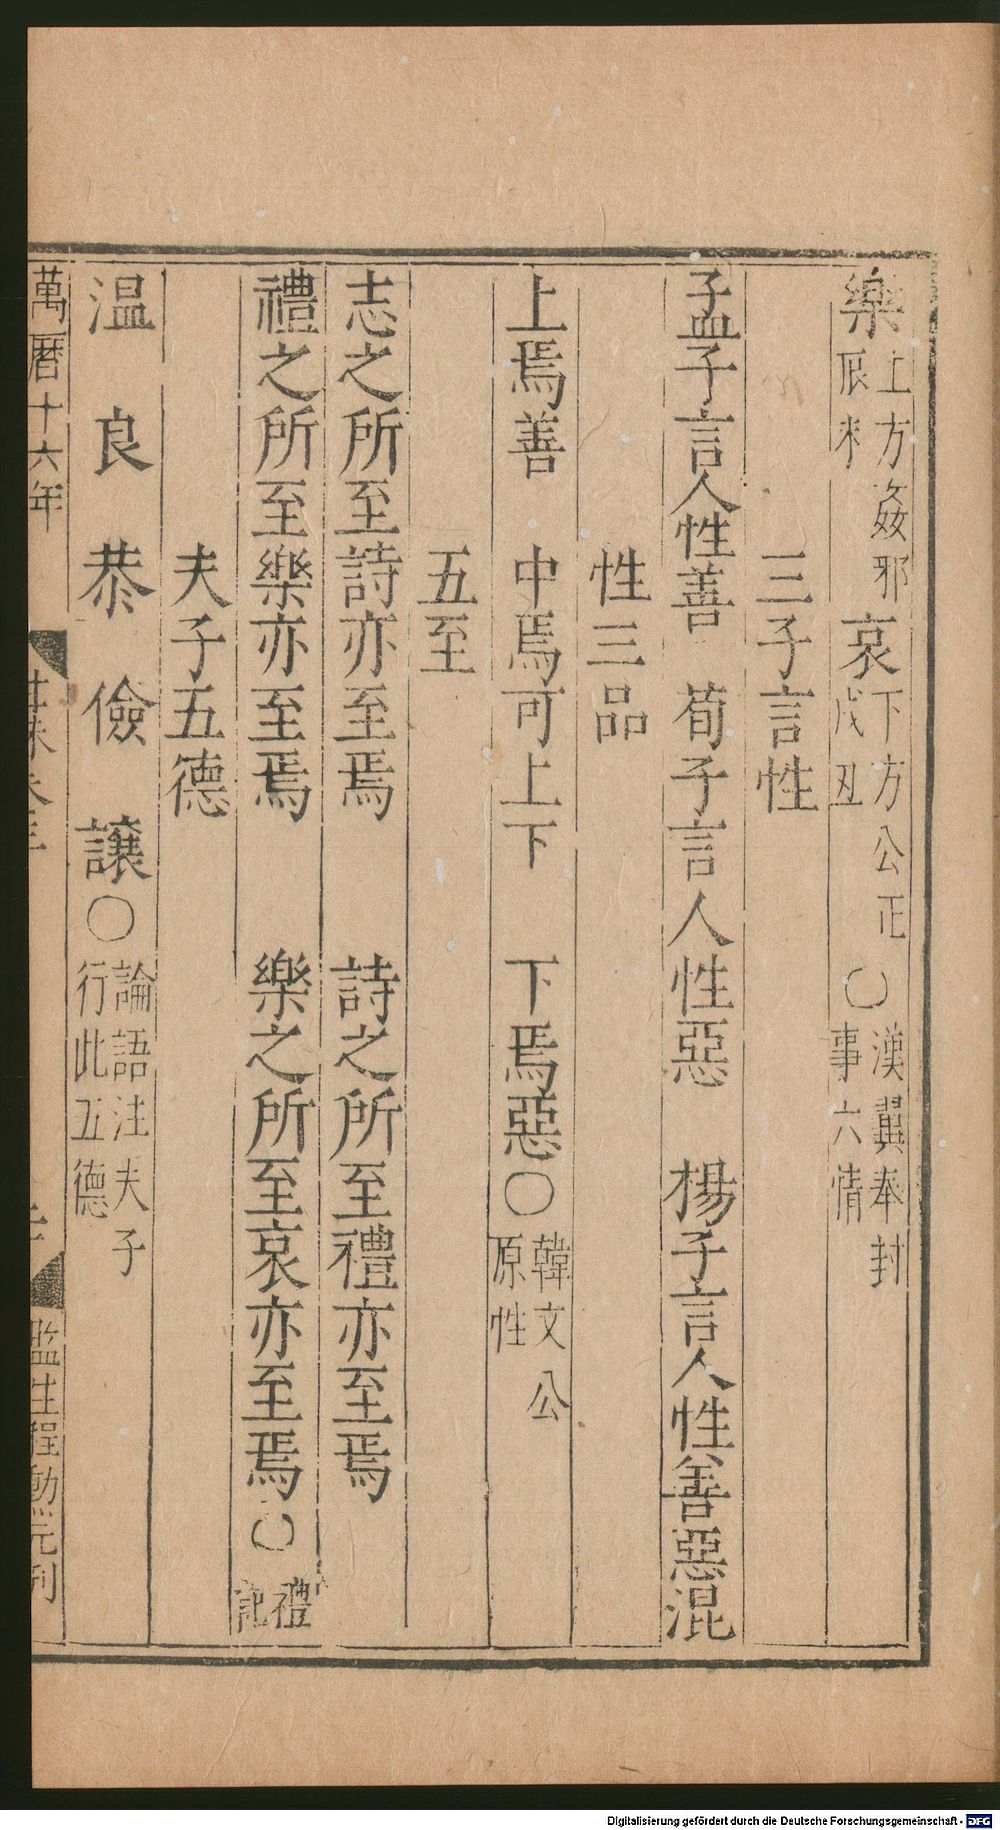 樂上方姦邪辰未哀下方公正戌丑〇漢翼奉封事六情
三子言性
孟子言人性善 荀子言人性惡 楊子言人性善惡混
性三品
上焉善 中焉可上下 下焉惡〇韓文公原性
五至
志之所至詩亦至焉 詩之所至禮亦至焉
禮之所至樂亦至焉 樂之所至哀亦至焉〇禮記
夫子五德
温 良 恭 儉 讓〇論語注夫子行此五德
萬曆十六年
監生程勳元刊
Digitalisierung gefördert durch die Deutsche Forschungsgemeinschaft - DFG